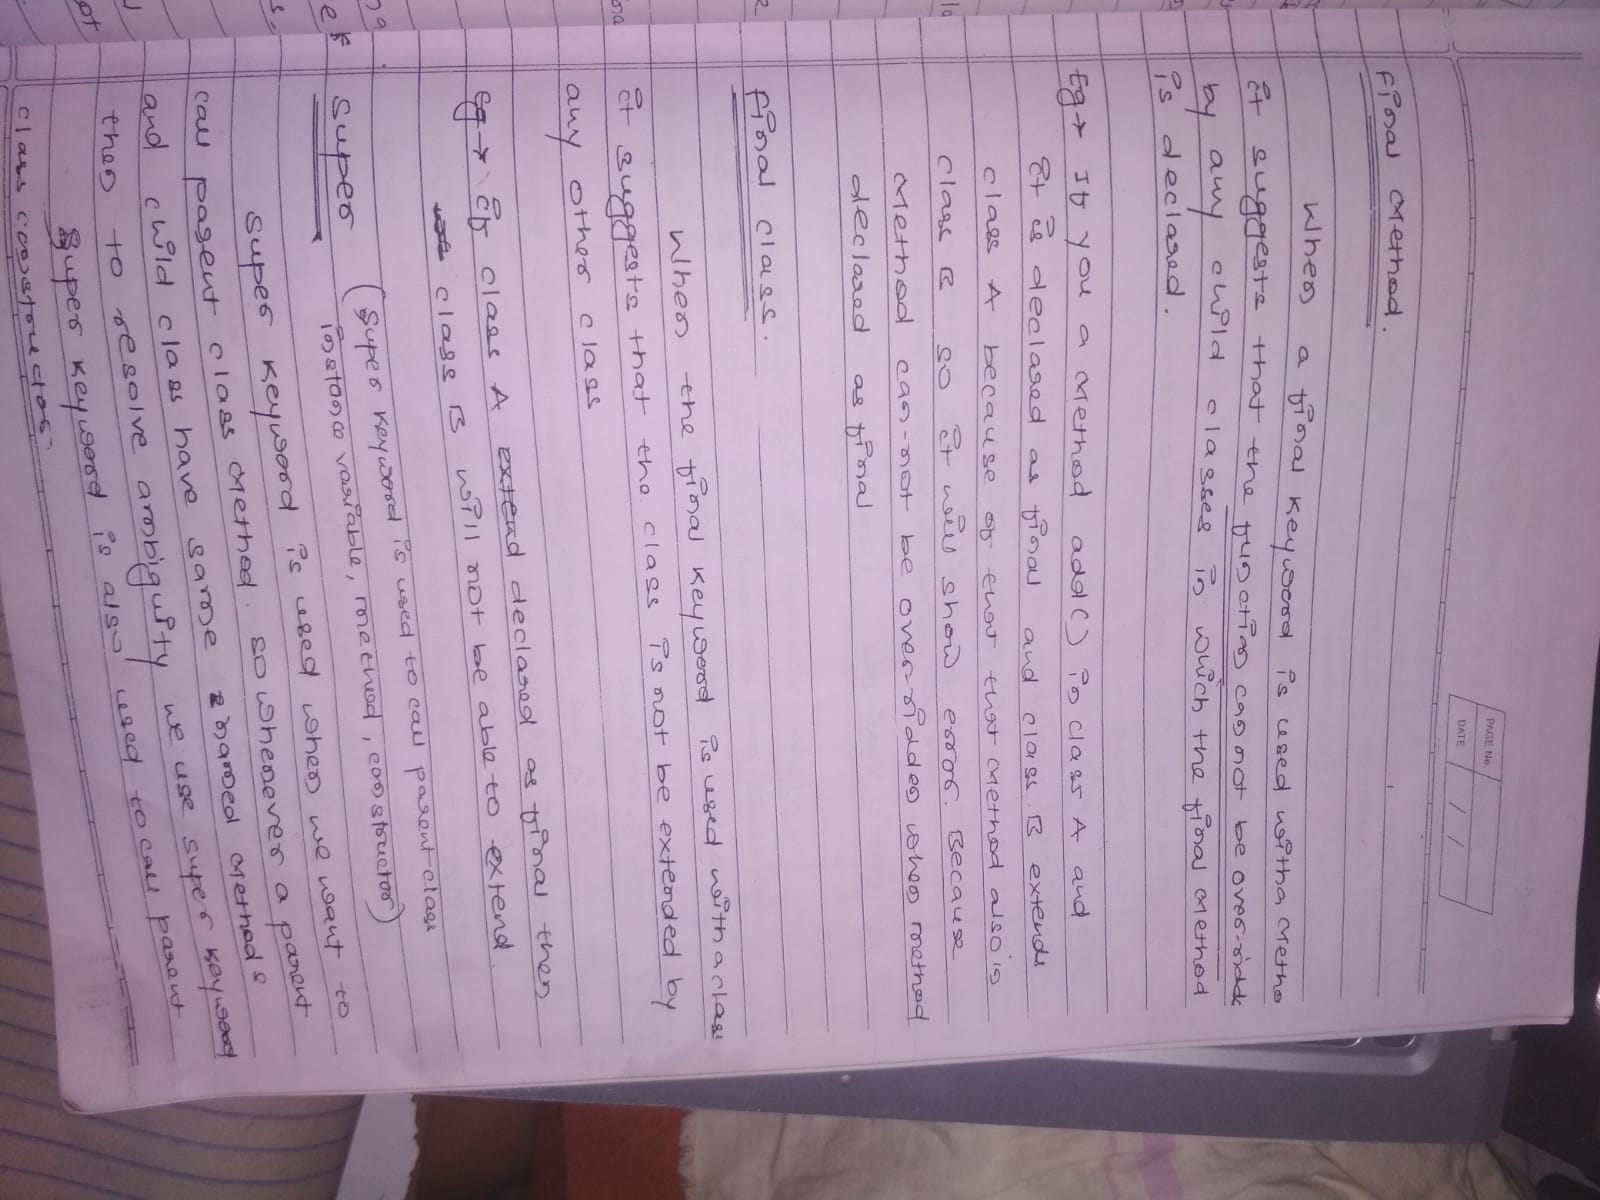 PAGE No.
DATE / /
final Method.
When a final keyword is used with a Metho
it suggests that the function can not be over-ridde
by any child classes in which the final Method
is declared.
Eg→ If you a Method add() in class A and
it is declared as final and class B extends
class A because of that that Method also in
class B so it will show error. Because
Method can-not be over-ridden when method
declared as final
final class.
When the final keyword is used with a class
it suggests that the class is not be extended by
any other class
Eg→ if class A extend declared as final then
class B will not be able to extend.
Super (Super keyword is used to call parent class
instance variable, method, constructor)
Super keyword is used when we want to
call parent class Method. So whenever a parent
and child class have same named Methods
then to resolve ambiguity we use super keyword
Super keyword is also used to call parent
class constructor.